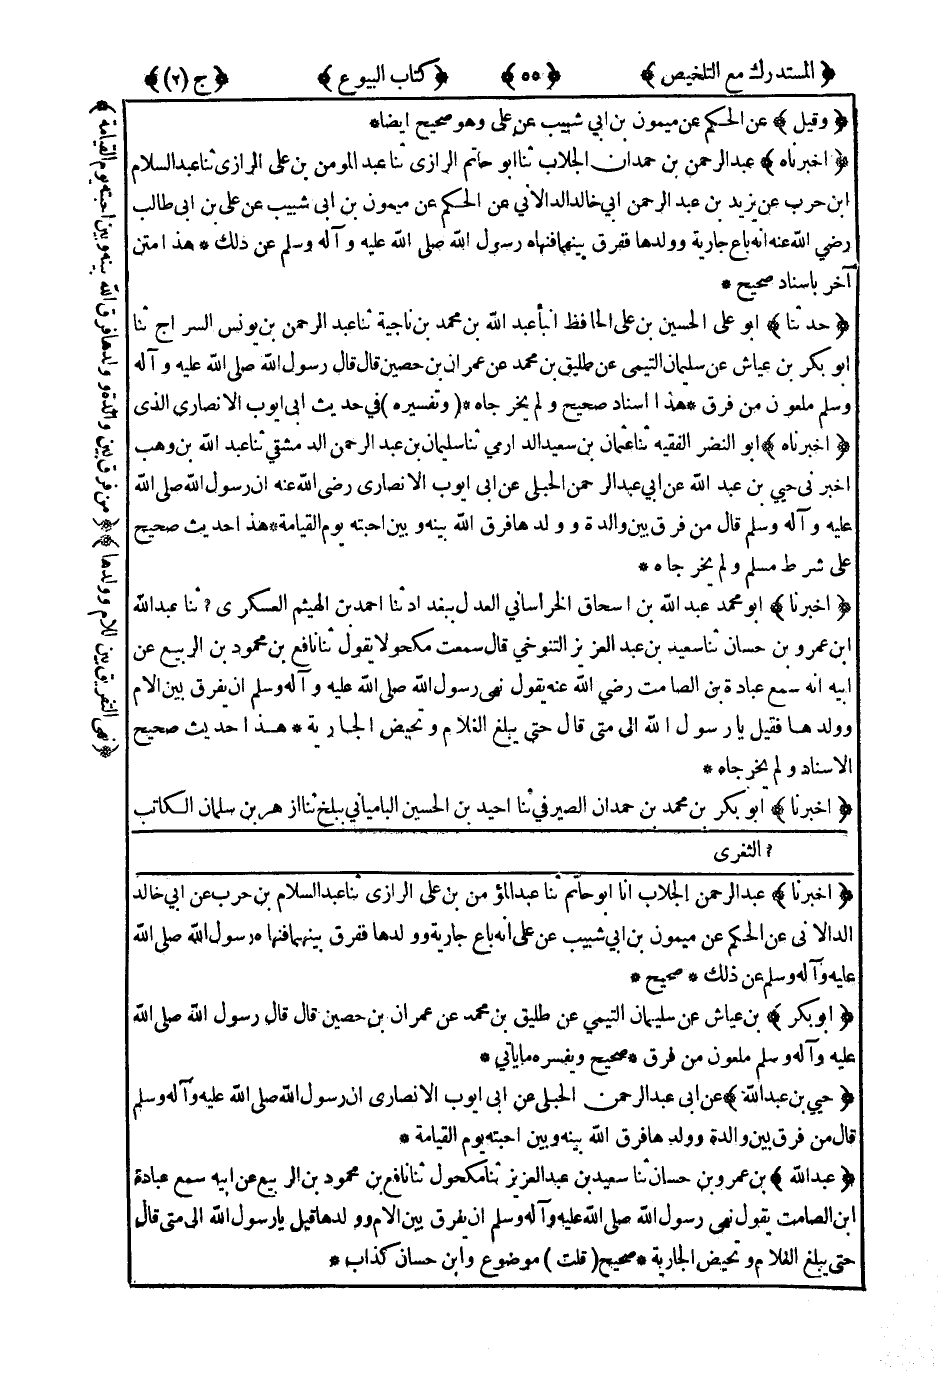 ﴿ المستدرك مع التلخيص ﴾ ﴿ ٥٥ ﴾ ﴿ كتاب البيوع ﴾ ﴿ ج (٢) ﴾
﴿ وقيل ﴾ عن الحكم عن ميمون بن ابي شبيب عن على وهو صحيح ايضا*
﴿ اخبرناه ﴾ عبد الرحمن بن حمدان الجلاب ثنا ابو حاتم الرازى ثنا عبد المومن بن على الرازى ثنا عبد السلام
ابن حرب عن يزيد بن عبد الرحمن ابي خالد الدالاني عن الحكم عن ميمون بن ابى شبيب عن على بن ابى طالب
رضي الله عنه انه باع جارية وولدها ففرق بينهما فنهاه رسول الله صلى الله عليه و آله وسلم عن ذلك * هذا متن
آخر باسناد صحيح *
﴿ حدثنا ﴾ ابو على الحسين بن على الحافظ انبأ عبد الله بن محمد بن ناجية ثنا عبد الرحمن بن يونس السراج ثنا
ابو بكر بن عياش عن سليمان التيمى عن طليق بن محمد عن عمران بن حصين قال قال رسول الله صلى الله عليه و آله
وسلم ملعون من فرق *هذا اسناد صحيح و لم يخرجاه *( وتفسيره )في حديث ابى ايوب الانصارى الذى
﴿ اخبرناه ﴾ابو النضر الفقيه ثنا عثمان بن سعيد الدارمي ثنا سليمان بن عبد الرحمن الدمشقي ثنا عبد الله بن وهب
اخبرنى حيي بن عبد الله عن ابي عبد الرحمن الحبلى عن ابى ايوب الانصارى رضى الله عنه ان رسول الله صلى الله
عليه و آله وسلم قال من فرق بين والدة وولدها فرق الله بينه وبين احبته يوم القيامة*هذا حديث صحيح
على شرط مسلم و لم يخرجاه *
﴿ اخبرنا ﴾ ابو محمد عبد الله بن اسحاق الخراساني العدل ببغداد ثنا احمد بن الهيثم العسكرى ? ثنا عبد الله
ابن عمرو بن حسان ثنا سعيد بن عبد العزيز التنوخي قال سمعت مكحولا يقول ثنا نافع بن محمود بن الربيع عن
ابيه انه سمع عبادة بن الصامت رضي الله عنه يقول نهى رسول الله صلى الله عليه و آله وسلم ان يفرق بين الام
وولدها فقيل يا رسول الله الى متى قال حتى يبلغ الغلام و تحيض الجارية * هذا حديث صحيح
الاسناد و لم يخرجاه *
﴿ اخبرنا ﴾ ابو بكر بن محمد بن حمدان الصيرفي ثنا احيد بن الحسين البامياني ببلخ ثنا ازهر بن سلمان الكاتب
? الثغرى
﴿ اخبرنا ﴾ عبد الرحمن الجلاب انا ابو حاتم ثنا عبد المؤمن بن على الرازى ثنا عبد السلام بن حرب عن ابي خالد
الدالانى عن الحكم عن ميمون بن ابي شبيب عن على انه باع جارية وولدها ففرق بينهما فنهاه رسول الله صلى الله
عليه وآله وسلم عن ذلك * صحيح *
﴿ ابو بكر ﴾ بن عياش عن سليمان التيمي عن طليق بن محمد عن عمران بن حصين قال قال رسول الله صلى الله
عليه وآله وسلم ملعون من فرق *صحيح ويفسره ما ياتي *
﴿ حيي بن عبد الله ﴾عن ابى عبد الرحمن الحبلى عن ابى ايوب الانصارى ان رسول الله صلى الله عليه وآله وسلم
قال من فرق بين والدة وولدها فرق الله بينه وبين احبته يوم القيامة *
﴿ عبد الله ﴾ بن عمرو بن حسان ثنا سعيد بن عبد العزيز ثنا مكحول ثنا نافع بن محمود بن الربيع عن ابيه سمع عبادة
ابن الصامت يقول نهى رسول الله صلى الله عليه وآله وسلم ان يفرق بين الام وولدها قيل يا رسول الله الى متى قال
حتى يبلغ الغلام و تحيض الجارية *صحيح( قلت ) موضوع وابن حسان كذاب *
﴿ نهى التفريق بين الام وولدها ﴾ ﴿ من فرق بين والدة وولدها فرق الله بينه وبين احبته يوم القيامة ﴾